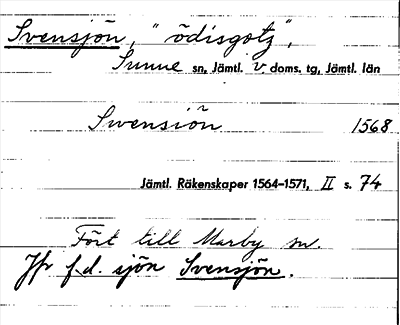 Svensjön, "ödisgotz",
Sunne sn, Jämtl. v. doms. tg, Jämtl. län
Swensiön 1568
Jämtl. Räkenskaper 1564–1571, II s. 74
Fört till Marby sn.
Jfr f.d. sjön Svensjön.